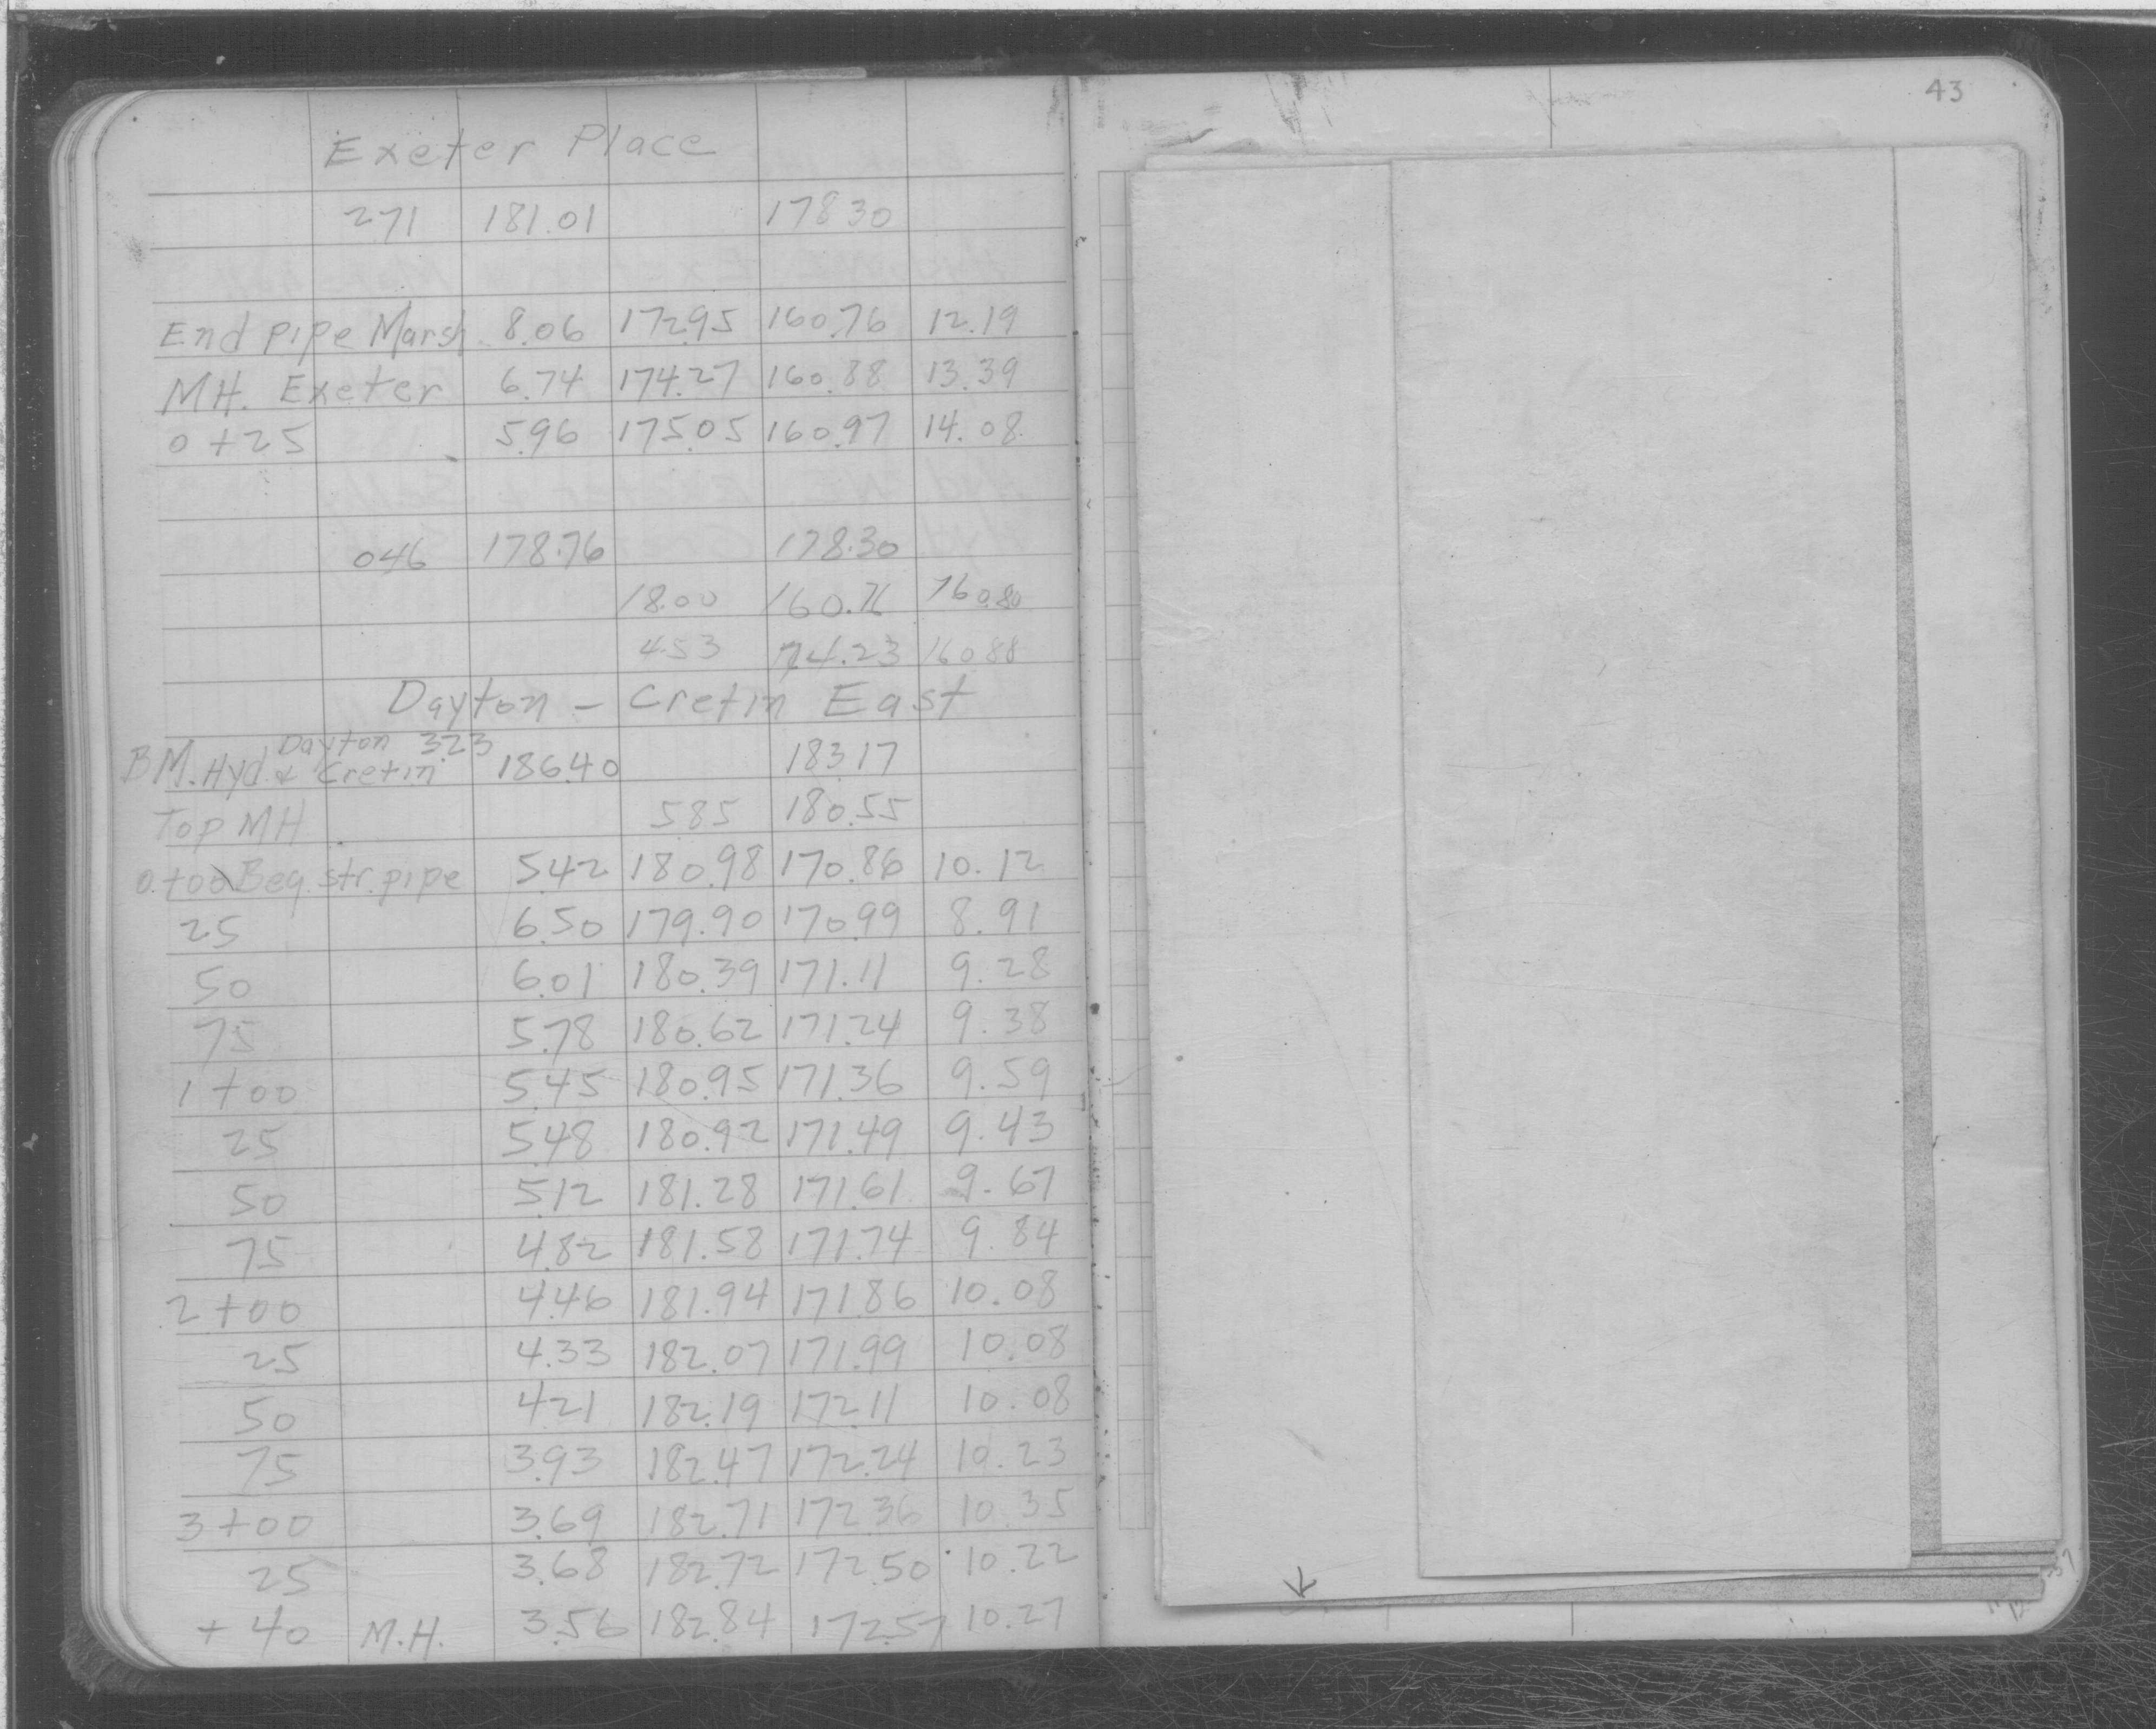 43
Exeter Place
271 181.01 178 30
End pipe Marsh 8.06 172.95 160.76 12.19
MH. Exeter 6.74 174.27 160.88 13.39
0 + 25 5.96 175.05 160.97 14.08
046 178.76 178.30
18.00 160.76 160.80
4.53 74.23 160.88
Dayton - Cretin East
Dayton 323
BM. Hyd. & Cretin 186.40 183.17
Top MH 5.85 180.55
0+00 Beg. str. pipe 5.42 180.98 170.86 10.12
25 6.50 179.90 170.99 8.91
50 6.01 180.39 171.11 9.28
75 5.78 180.62 171.24 9.38
1 + 00 5.45 180.95 171.36 9.59
25 5.48 180.92 171.49 9.43
50 5.12 181.28 171.61 9.67
75 4.82 181.58 171.74 9.84
2 + 00 4.46 181.94 171.86 10.08
25 4.33 182.07 171.99 10.08
50 4.21 182.19 172.11 10.08
75 3.93 182.47 172.24 10.23
3 + 00 3.69 182.71 172.36 10.35
25 3.68 182.72 172.50 10.22
+ 40 M.H. 3.56 182.84 172.57 10.27